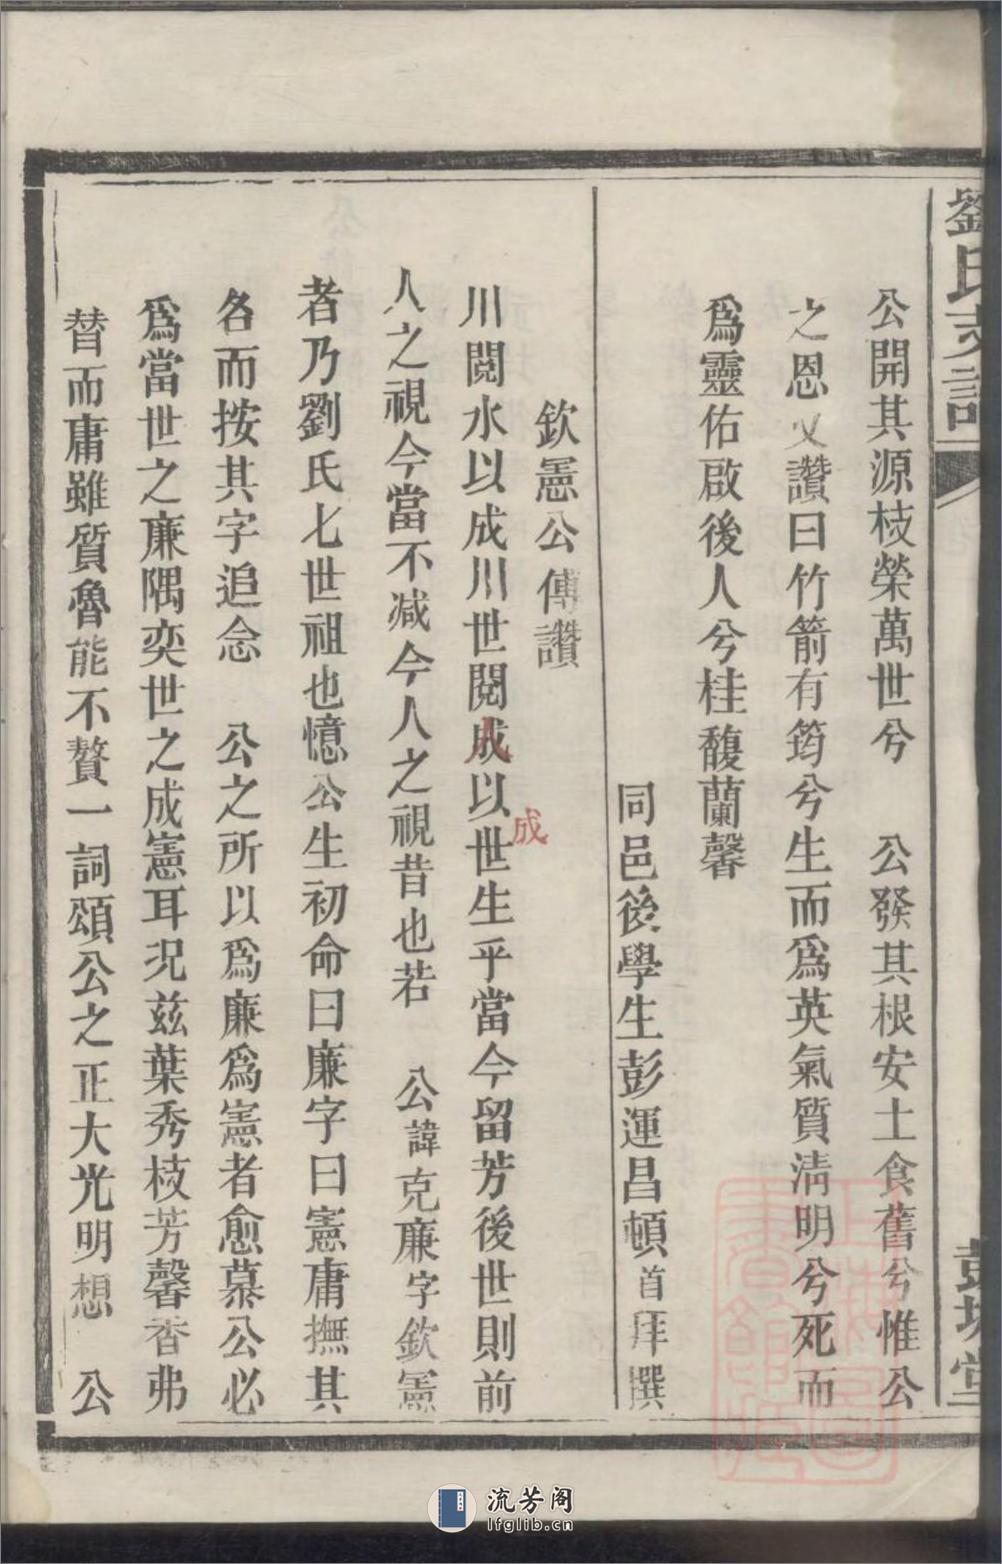 劉氏支譜
彭城堂
公開其源枝榮萬世兮　公發其根安土食舊兮惟公
之恩又讚曰竹箭有筠兮生而爲英氣質淸明兮死而
爲靈佑啟後人兮桂馥蘭馨
同邑後學生彭運昌頓首拜撰
欽憲公傳讚
川閱水以成川世閱成以世生乎當今留芳後世則前
人
成
人之視今當不减今人之視昔也若　公諱克廉字欽憲
者乃劉氏七世祖也憶公生初命曰廉字曰憲庸撫其
名而按其字追念　公之所以爲廉爲憲者愈慕公必
爲當世之廉隅奕世之成憲耳况玆葉秀枝芳馨香弗
替而庸雖質魯能不贅一詞頌公之正大光明想　公
流芳阁
lfglib.cn